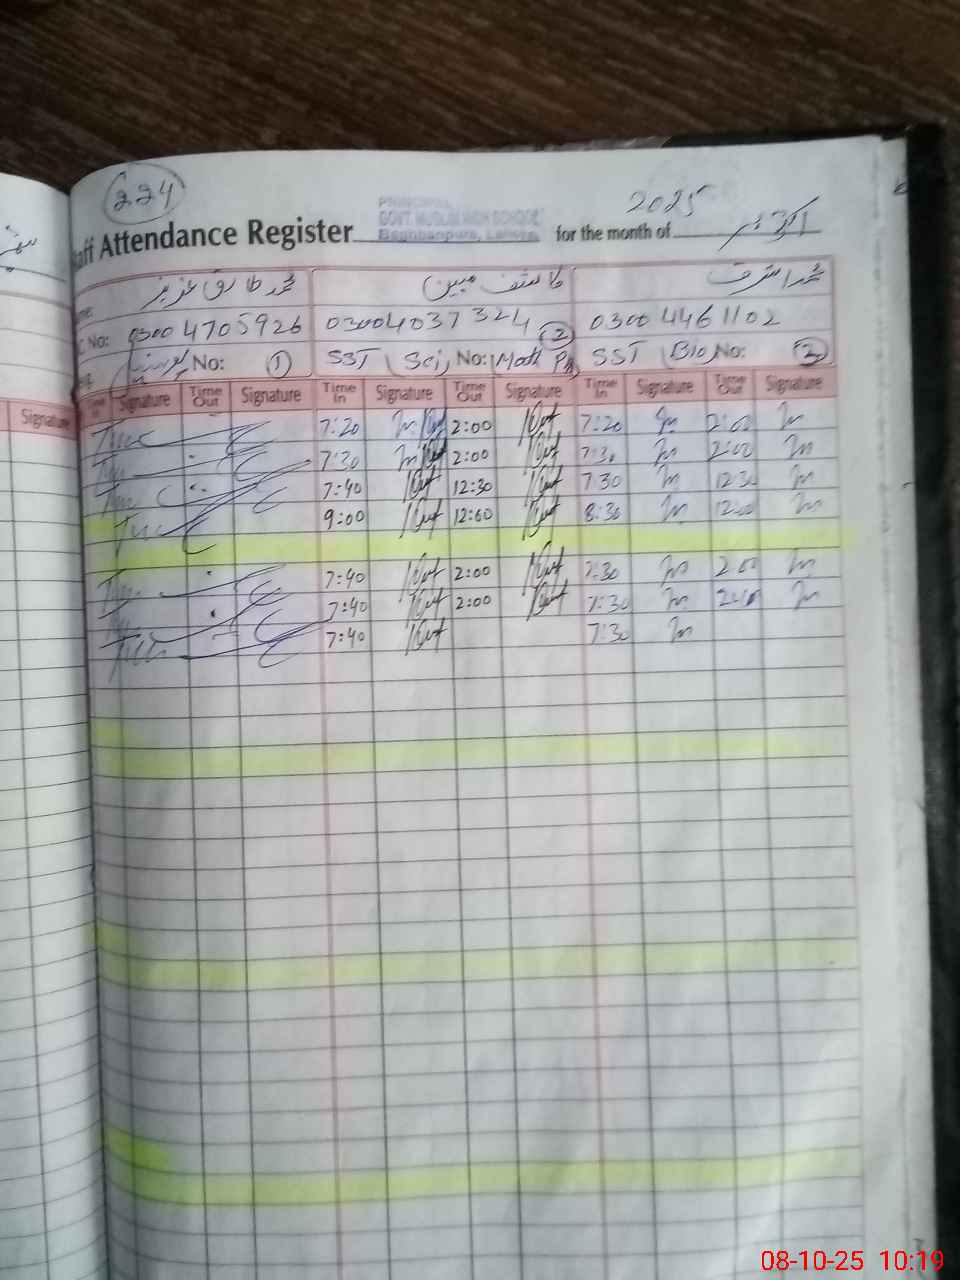 224
2025
Staff Attendance Register PRINCIPAL GOVT. MUSLIM HIGH SCHOOL Baghbanpura, Lahore. for the month of اکتوبر
محمد طارق عزیز کاشف مبین محمد اشرف
No: 0300 4705926 03004037324 0300 4461102
پرنسپل No: 1 SST (Sci) No: (Math 2 SST (Bio) No: 3
In Signature Time Out Signature Time In Signature Time Out Signature Time In Signature Time Out Signature
Signature
7:20 2:00 7:20 2:00
7:30 2:00 7:30 2:00
7:40 12:30 7:30 12:30
9:00 12:00 8:30 12:00
7:40 2:00 7:30 2:00
7:40 2:00 7:30 2:00
7:40 7:30
08-10-25 10:19